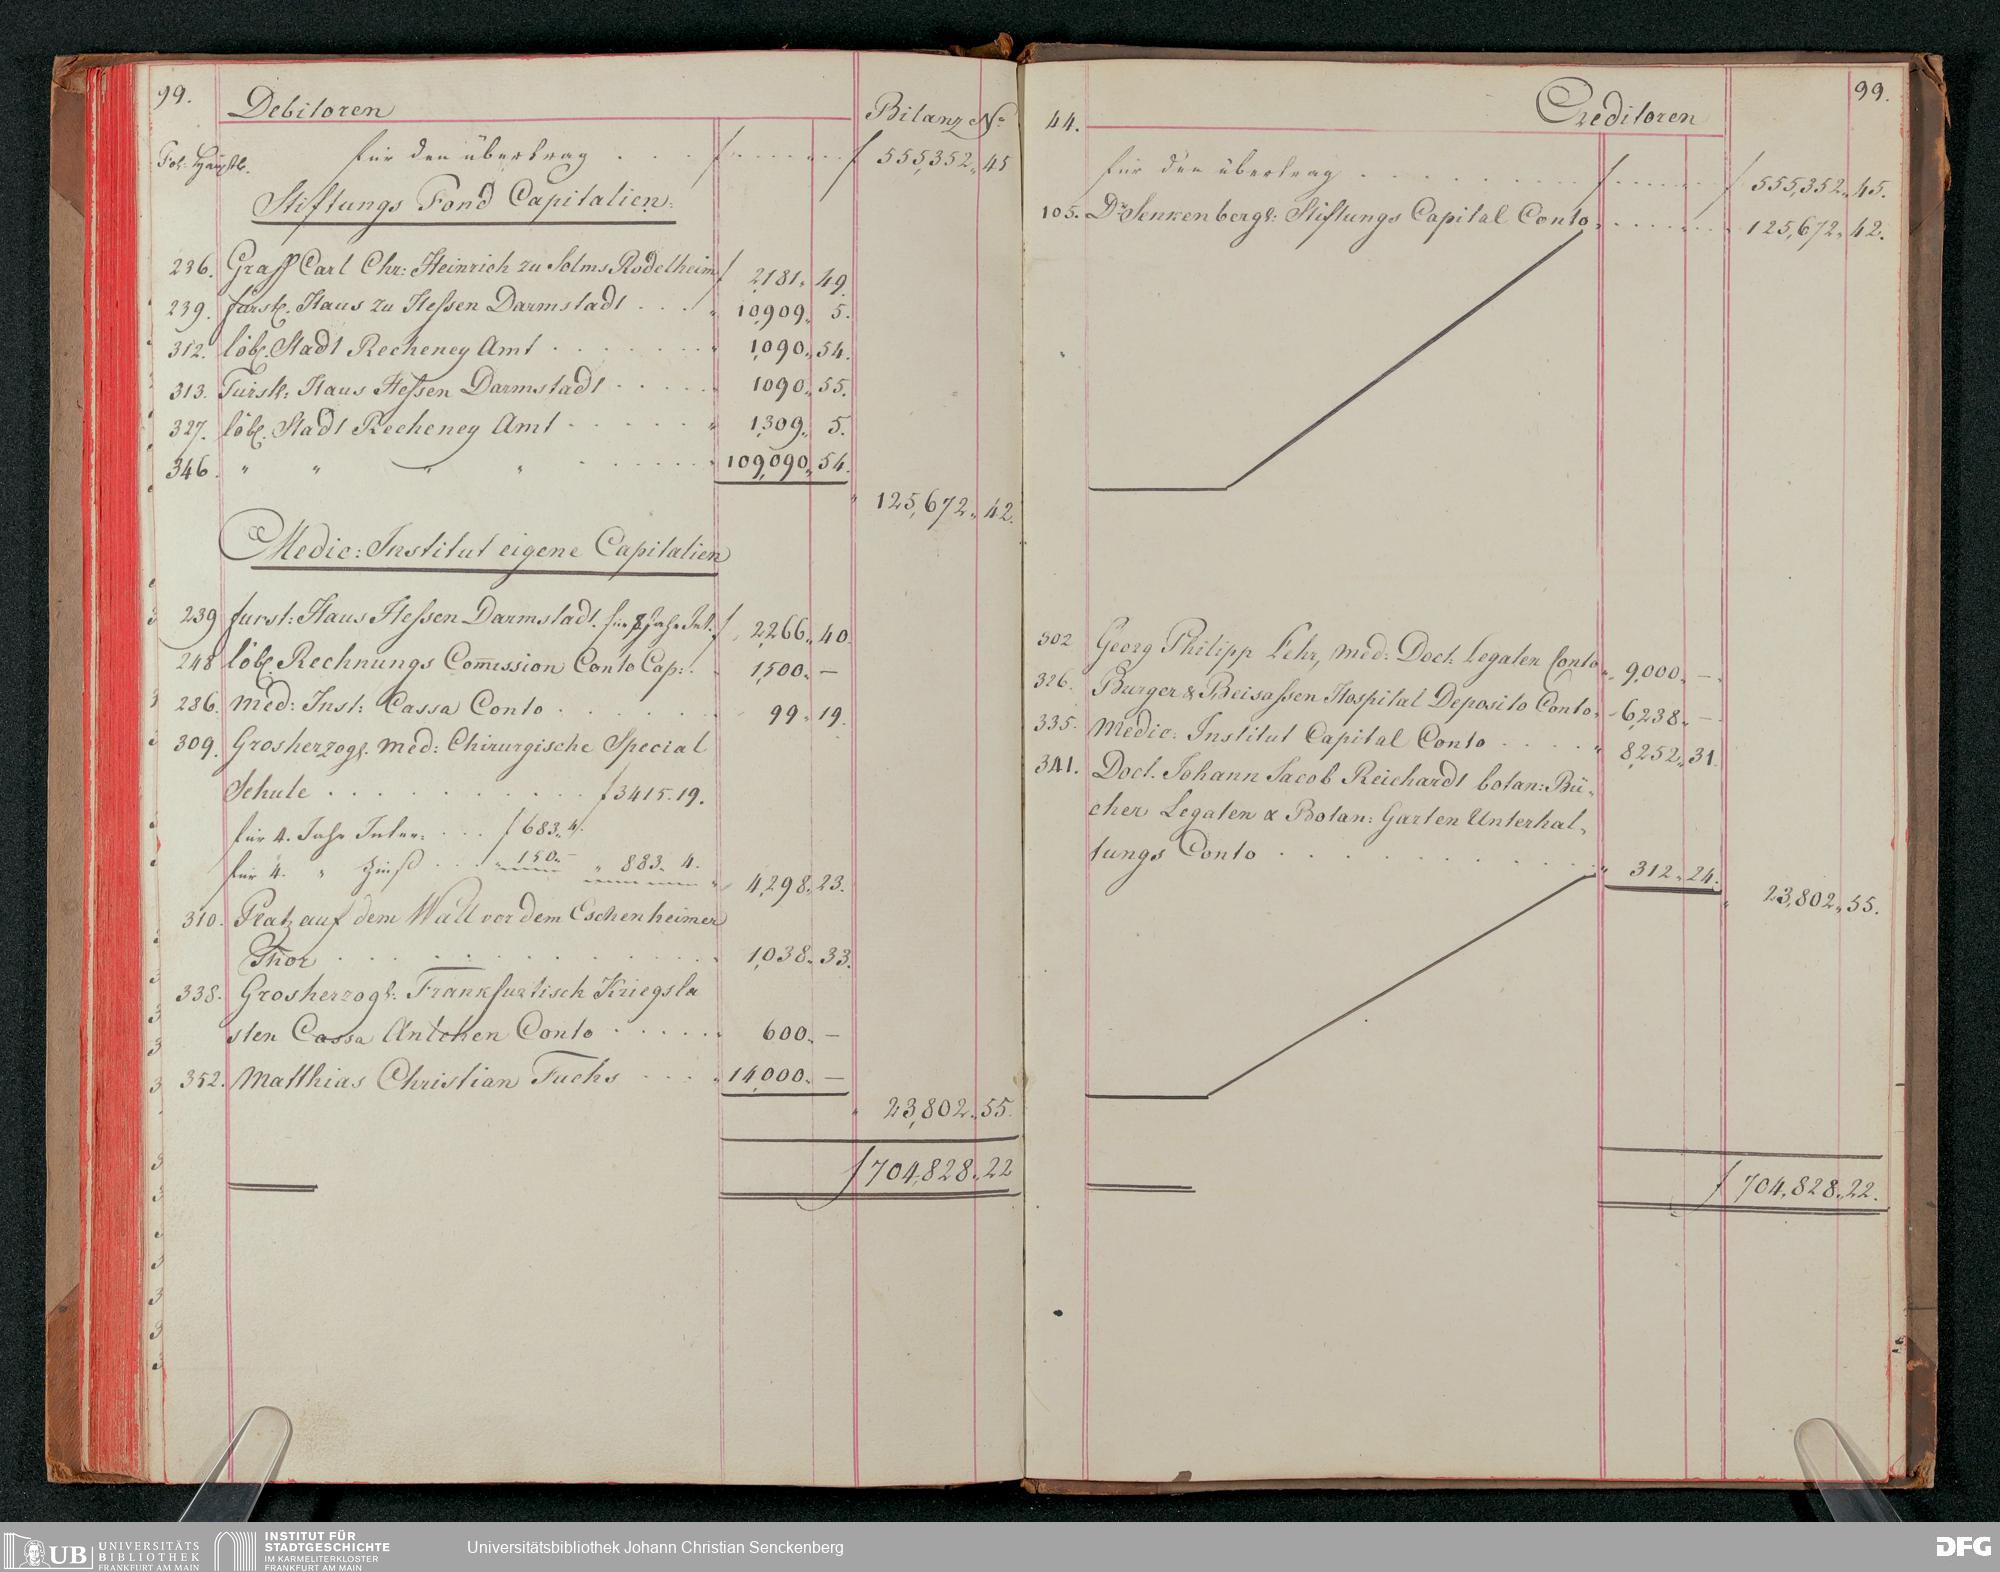 99.
Debitoren
Bilanz No
Fol. Hauptb.
für den übertrag . . . f . . . . . f 555,352„ 45
Stiftungs Fond Capitalien:
236. Graff Carl Chr: Heinrich zu Solms Rödelheim f 2181„ 49.
239. fürstl. Haus zu Hessen Darmstadt . . . „ 10,909„ 5.
312. löbl. Stadt Recheney Amt . . . . . . „ 1,090„ 54.
313. Fürstl: Haus Hessen Darmstadt . . . . . 1090„ 55.
327. löbl. Stadt Recheney Amt . . . . . „ 1,309„ 5.
346. „ „ „ „ . . . . . . „ 109,090„ 54.
„ 125,672„ 42.
Medic: Institut eigene Capitalien
239 furst: Haus Hessen Darmstadt. für 8 Jahr Int. f 2,266„ 40.
248 löbl. Rechnungs Com̄ission Conto Cap: . . 1,500„ —
286. Med: Inst: Cassa Conto . . . . . . 99„ 19.
309. Grosherzogl. Med: Chirurgische Special
Schule . . . . . . . . . . f 3415. 19.
für 4. Jahr Inter: . . . f 683„ 4.
für 4. „ Zinß . . . „ 150„ — „ 883„ 4. „ 4,298„ 23.
310. Platz auf dem Wall vor dem Eschenheimer
Thor . . . . . . . . . . 1,038„ 33.
338. Grosherzogl: Frankfurtisch Kriegsla
sten Cassa Antchen Conto . . . . . „ 600„ —
352. Matthias Christian Fuchs . . . . „ 14,000„ —
„ 23,802„ 55.
f 704,828„ 22
44.
Creditoren
99.
für den übertrag . . . . . . . . . f . . . . . f 555,352„ 45.
105. Dr. Senkenbergl: Stiftungs Capital Conto . . . . . . . 125,672„ 42.
302 Georg Philipp Lehr, Med: Doct. Legaten Conto „ 9,000„ —
326. Burger & Beisassen Hospital Deposito Conto „ 6,238„ —
335. Medic: Institut Capital Conto . . . . „ 8,252„ 31.
341. Doct. Johann Jacob Reichardt botan: Bü-
cher Legaten & Botan: Garten Unterhal-
tungs Conto . . . . . . . . . . „ 312„ 24.
„ 23,802„ 55.
f 704,828„ 22.
UB UNIVERSITÄTS
BIBLIOTHEK
FRANKFURT AM MAIN
INSTITUT FÜR
STADTGESCHICHTE
IM KARMELITERKLOSTER
FRANKFURT AM MAIN
Universitätsbibliothek Johann Christian Senckenberg
DFG